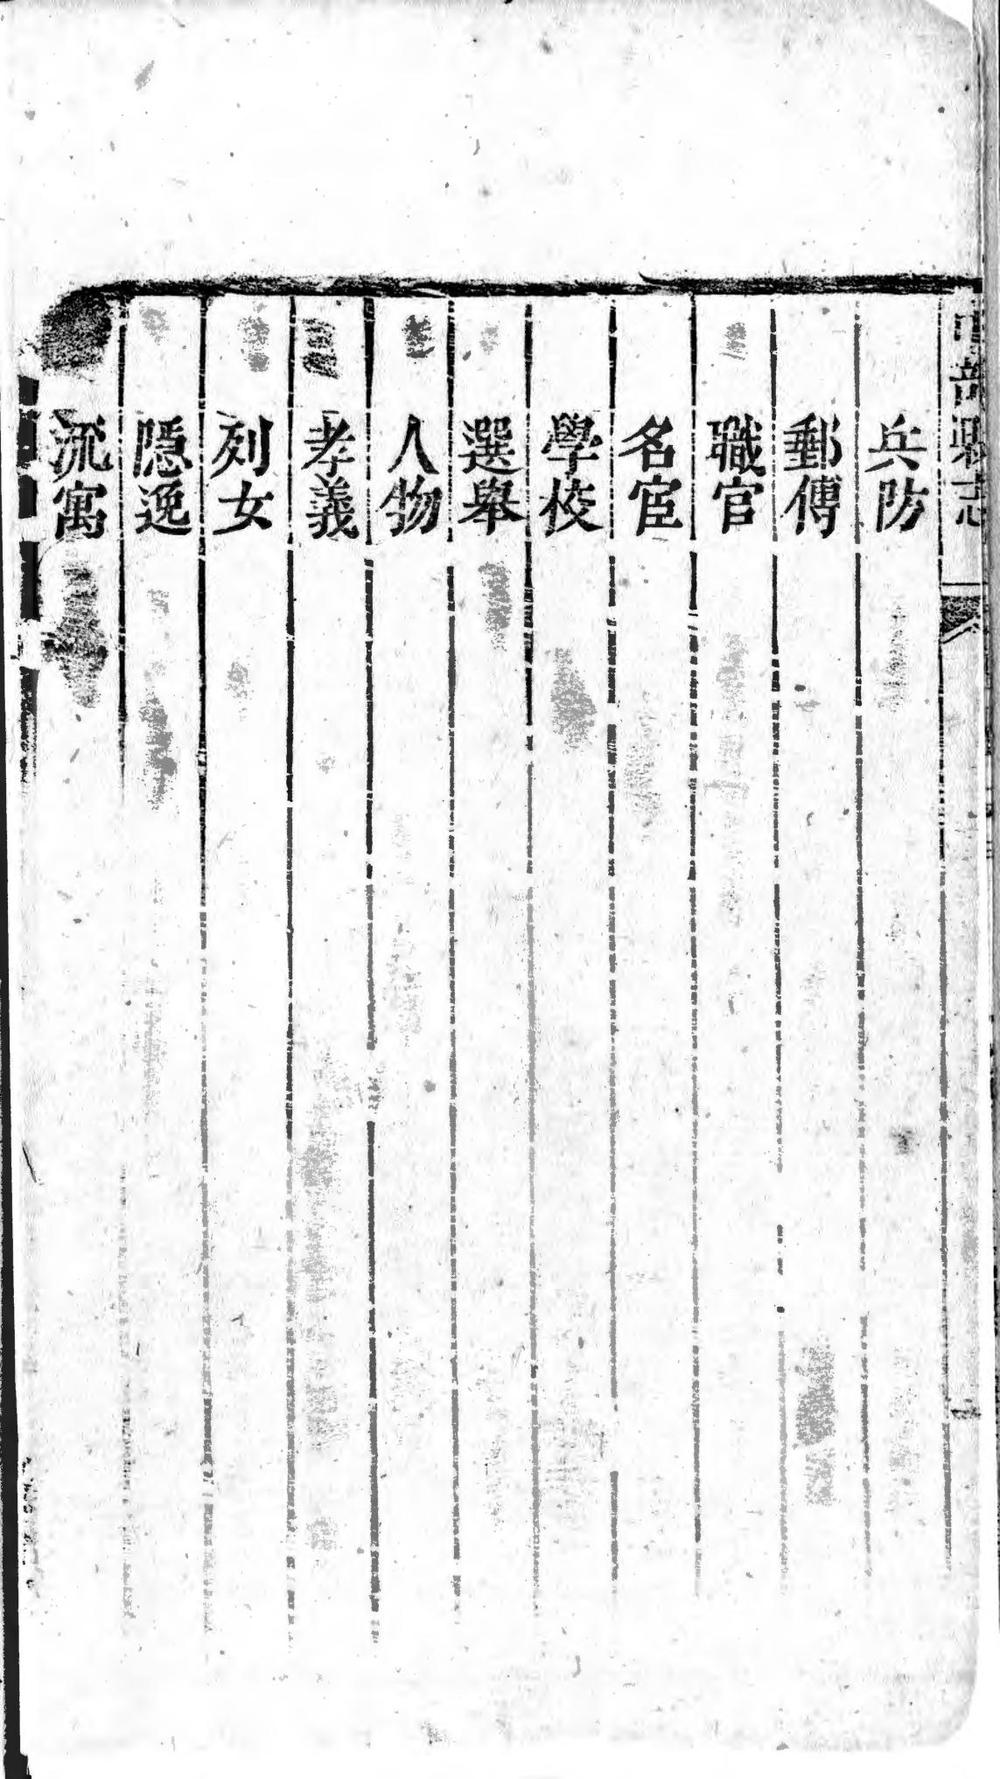 中部縣志
兵防
郵傳
職官
名宦
學校
選舉
人物
孝義
列女
隱逸
流寓